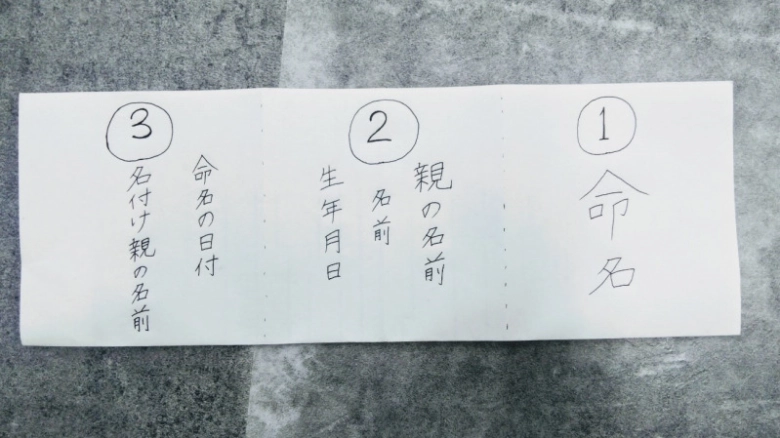 1
命名
2
親の名前
名前
生年月日
3
命名の日付
名付け親の名前